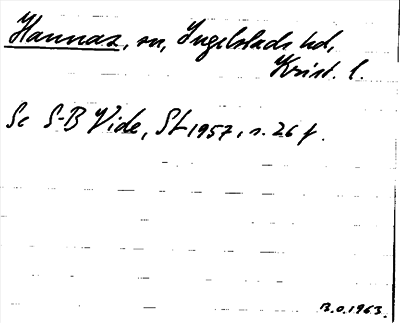 Hannas, sn, Ingelstads hd,
Krist. l.
Se S-B Vide, St 1957, s. 26 f.
B.O.1963.